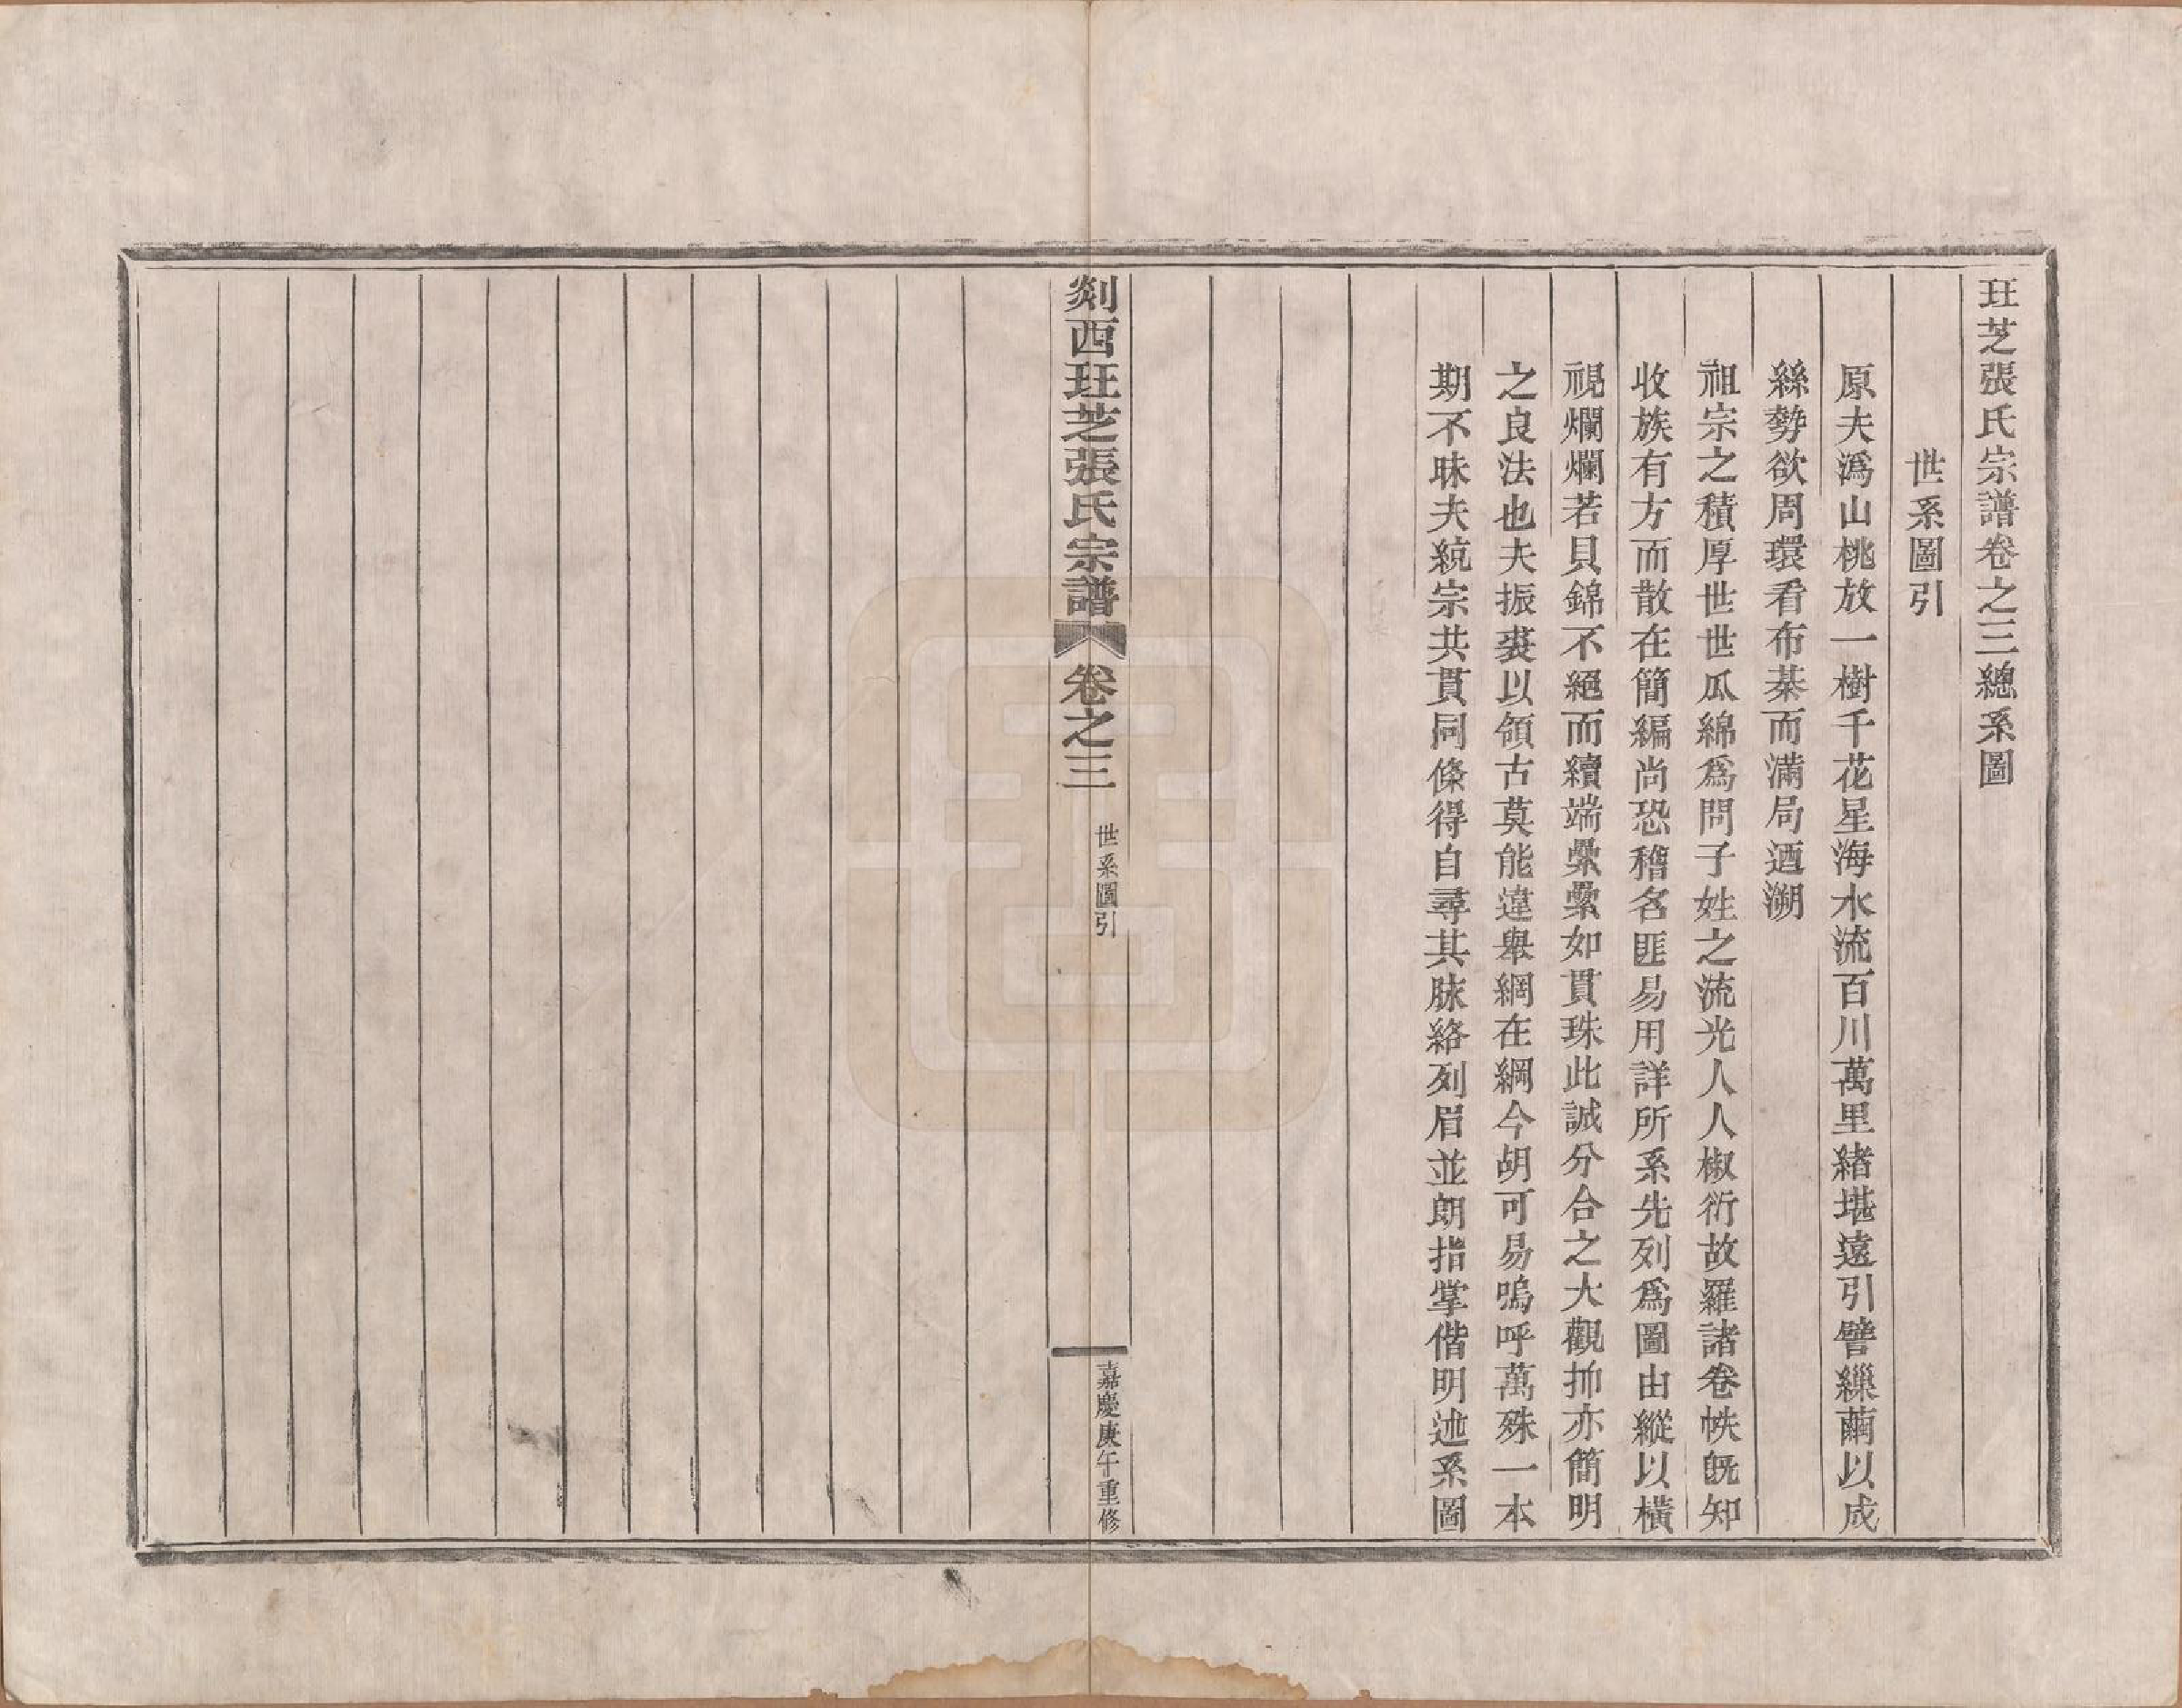 玨芝張氏宗譜卷之三總系圖
世系圖引
原夫潙山桃放一樹千花星海水流百川萬里緒堪遠引譬繅繭以成
絲勢欲周環看布棊而滿局迺溯
祖宗之積厚世世瓜綿爲問子姓之流光人人椒衍故羅諸卷帙旣知
收族有方而散在簡編尚恐稽名匪易用詳所系先列爲圖由縱以橫
視爛爛若貝錦不絕而續端纍纍如貫珠此誠分合之大觀抑亦簡明
之良法也夫振裘以領古莫能違舉網在綱今胡可易嗚呼萬殊一本
期不昧夫統宗共貫同條得自尋其脉絡列眉並朗指掌偕明述系圖
剡西玨芝張氏宗譜
卷之三
世系圖引
嘉慶庚午重修